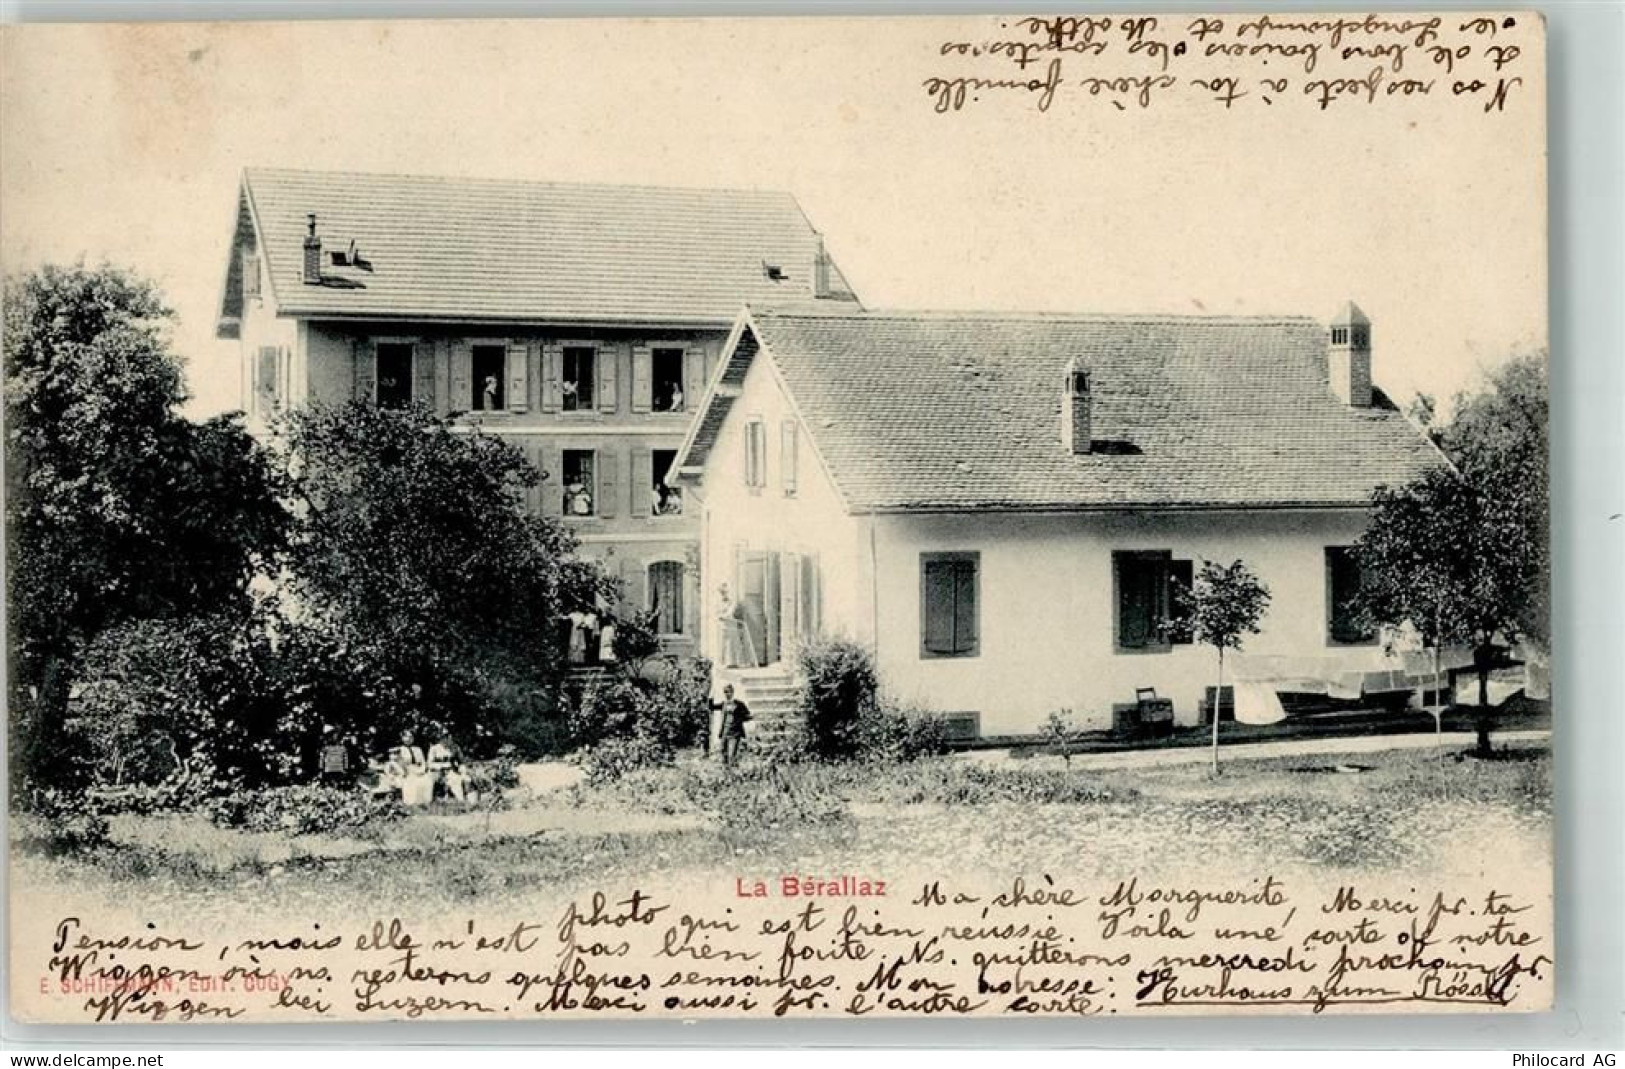 La Bérallaz
Ma chère Marguerite, Merci pr. ta
photo qui est bien réussie. Voilà une carte de notre
Pension, mais elle n'est pas bien faite. Ns. quitterons mercredi prochain pr.
Wiggen où ns. resterons quelques semaines. Mon adresse: Kurhaus zum Rössli
Wiggen bei Luzern. Merci aussi pr. l'autre carte.
E. SCHIFFMANN, EDIT. CUGY
Nos respects à ta chère famille
et de bons baisers des
de Longchamps et Malthe.
Philocard AG
www.delcampe.net